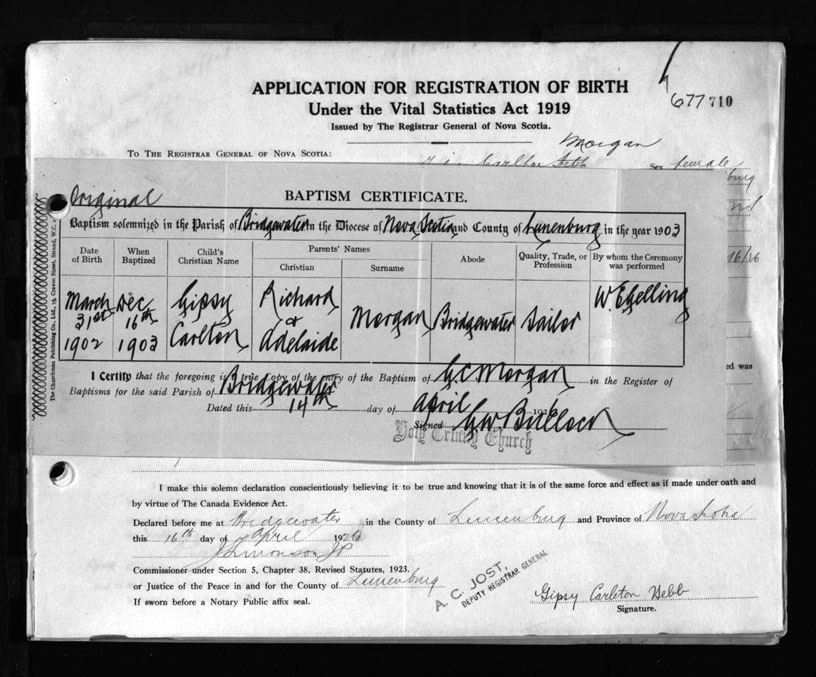 APPLICATION FOR REGISTRATION OF BIRTH
677 710
Under the Vital Statistics Act 1919
Issued by The Registrar General of Nova Scotia.
Morgan
TO THE REGISTRAR GENERAL OF NOVA SCOTIA:
female
Original
BAPTISM CERTIFICATE.
Baptism solemnized in the Parish of Bridgewater in the Diocese of Nova Scotia and County of Lunenburg in the year 1903
Date of Birth
When Baptized
Child's Christian Name
Parents' Names
Christian
Surname
Abode
Quality, Trade, or Profession
By whom the Ceremony was performed
March 31st 1902
Dec 16th 1903
Gipsy Carlton
Richard & Adelaide
Morgan
Bridgewater
Sailor
W. E. Gelling
I Certify that the foregoing is a true Copy of the entry of the Baptism of G C Morgan in the Register of
Baptisms for the said Parish of Bridgewater
Dated this 14th day of April 192
Signed G W Bullock
Holy Trinity Church
I make this solemn declaration conscientiously believing it to be true and knowing that it is of the same force and effect as if made under oath and
by virtue of The Canada Evidence Act.
Declared before me at Bridgewater in the County of Lunenburg and Province of Nova Scotia
this 16th day of April 1926
Commissioner under Section 5, Chapter 38, Revised Statutes, 1923.
or Justice of the Peace in and for the County of Lunenburg
If sworn before a Notary Public affix seal.
A. C. JOST,
DEPUTY REGISTRAR GENERAL
Gipsy Carleton Hebb
Signature.